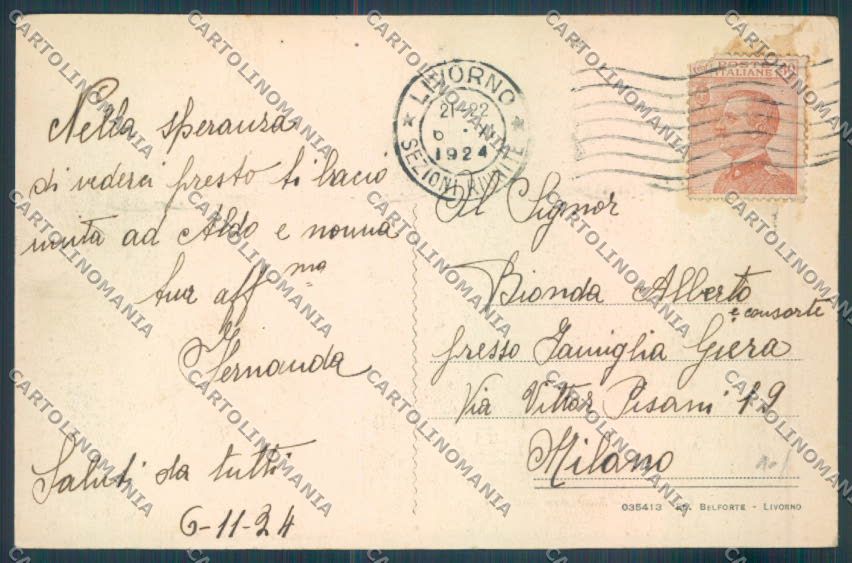 Nella speranza
di vederci presto ti bacio
unita ad Aldo e nonna
tua aff ma
Fernanda
Saluti da tutti
6-11-24
LIVORNO
21-22
6
1924
SEZIONI RIUNITE
POSTE
ITALIANE
Al Signor
Bionda Alberto
e consorte
presso Famiglia Giera
Via Vittor Pisani 19
Milano
035413 ED. BELFORTE - LIVORNO
CARTOLINOMANIA